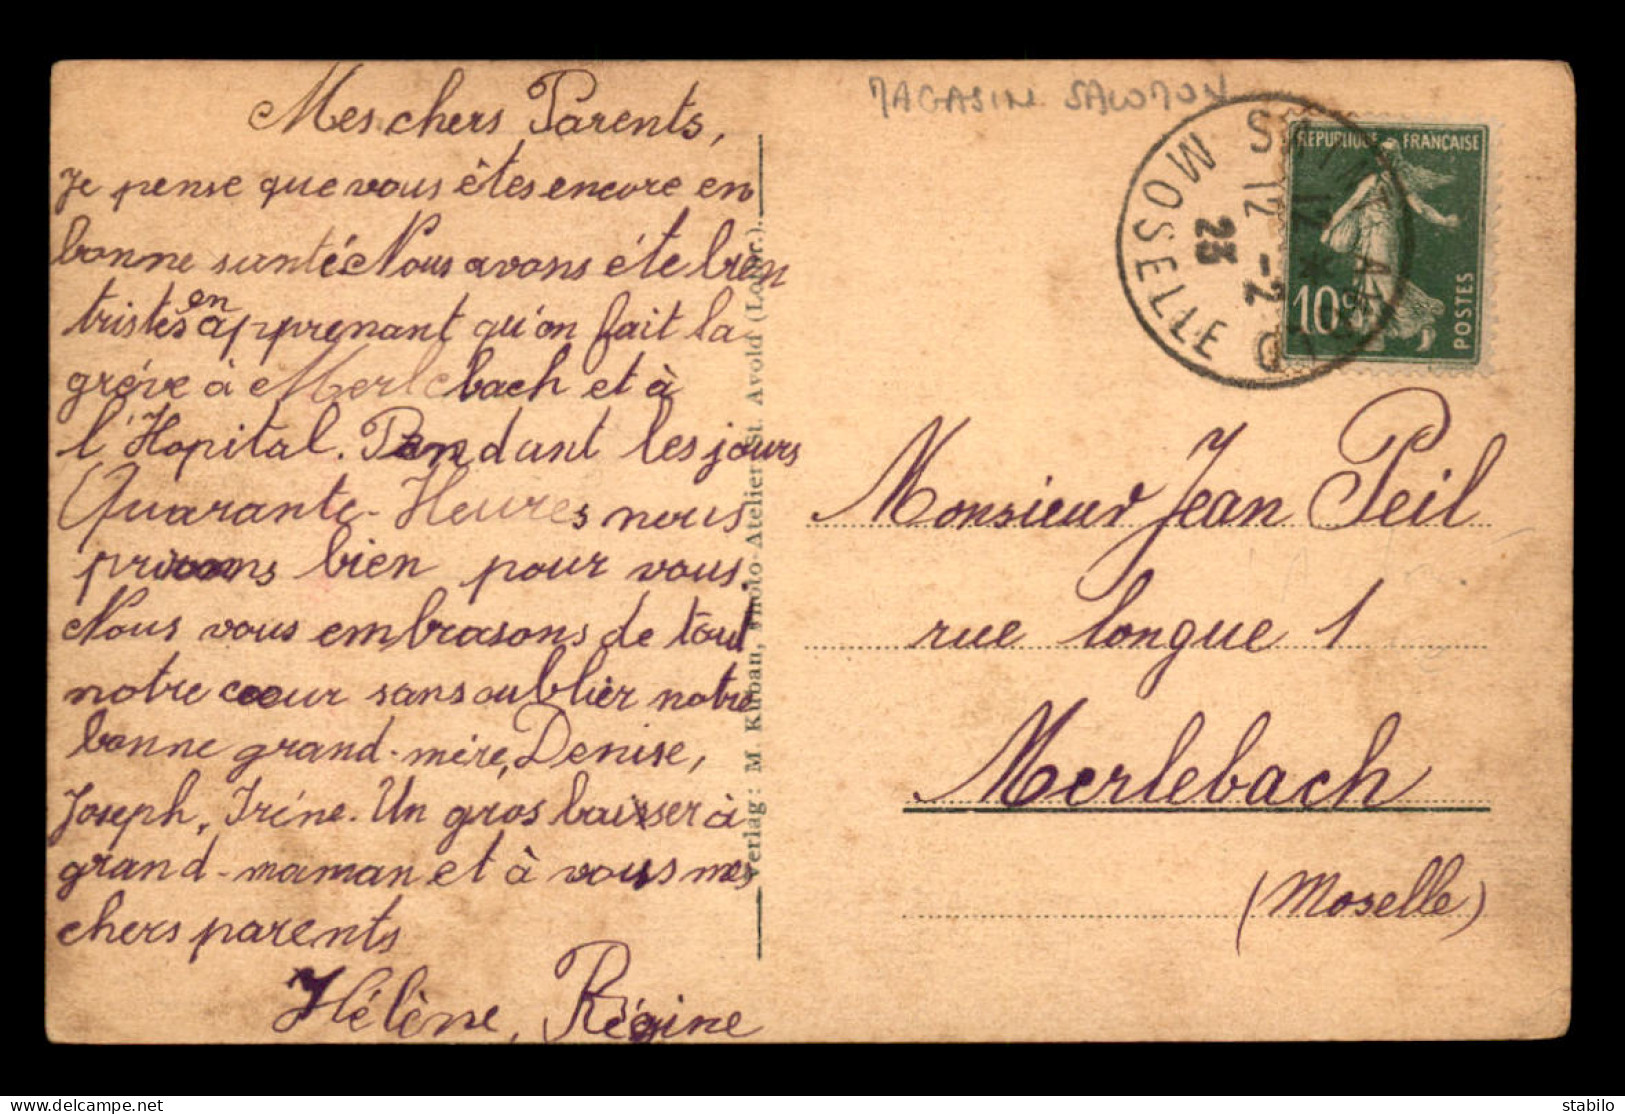 Mes chers Parents,
Je pense que vous êtes encore en
bonne santé Nous avons éte bien
tristes en apprenant qu'on fait la
gréve à Merlebach et à
l'Hopital. Pendant les jours
Quarante-Heures nous
prions bien pour vous.
Nous vous embrasons de tout
notre cœur sans oublier notre
bonne grand-mére, Denise,
Joseph, Iréne. Un gros baiser à
grand-maman et à vous mes
chers parents
Hélène, Régine
Verlag: M. Kurban, Photo-Atelier, St. Avold (Lothr.).
MAGASIN SALOMON
MOSELLE
12
12 -2
23
REPUBLIQUE FRANÇAISE
10c
POSTES
Monsieur Jean Peil
rue longue 1
Merlebach
(Moselle)
stabilo